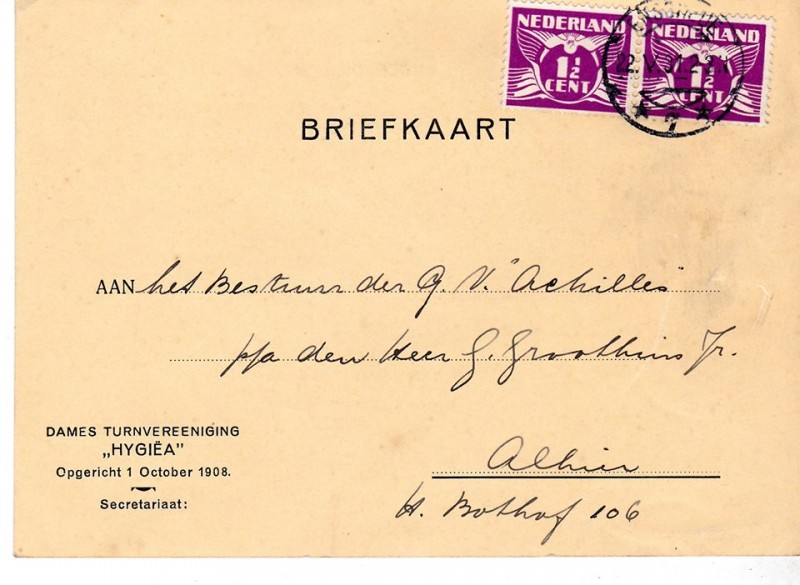 NEDERLAND NEDERLAND
1½ CENT 1½ CENT
22.V.31.2
BRIEFKAART
AAN het Bestuur der G. V. "Achilles"
p/a den Heer G. Groothuis Jr.
DAMES TURNVEREENIGING
„HYGIËA”
Opgericht 1 October 1908.
Secretariaat:
Alhier
H. Bothof 106